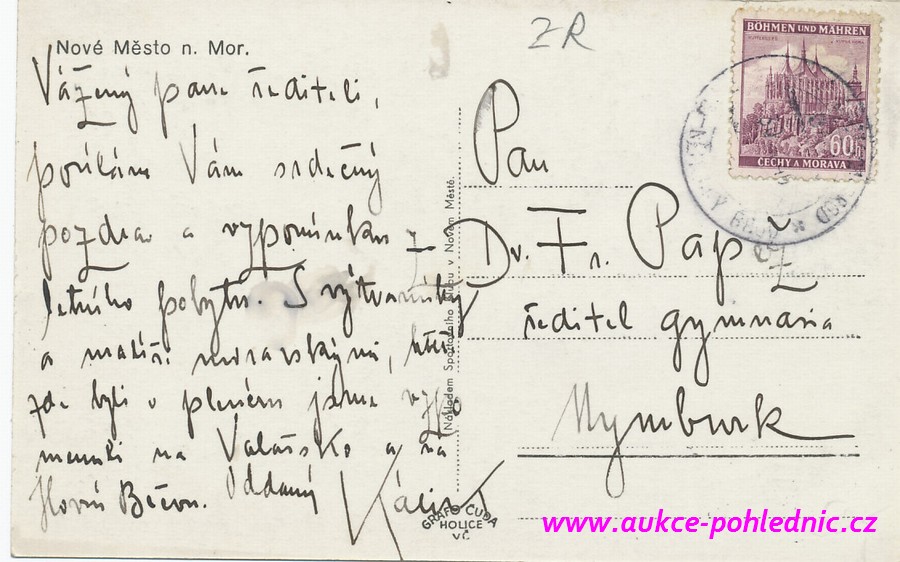 Nové Město n. Mor.
ZR
Vážený pane řediteli,
posílám Vám srdečný
pozdrav a vzpomínku z
letního pobytu. S výtvarníky
a malíři moravskými, kteří
zde byli v plném jsme vzpo
menuli na Valašsko a na
Horní Bečvu. Oddaný
Nákladem Spořitelního v Novém Městě.
GRAFO ČUDA
HOLICE
VČ
BÖHMEN UND MÄHREN
60h
ČECHY A MORAVA
BROD
Pan
Dr. Fr. Papž
ředitel gymnasia
Nymburk
www.aukce-pohlednic.cz